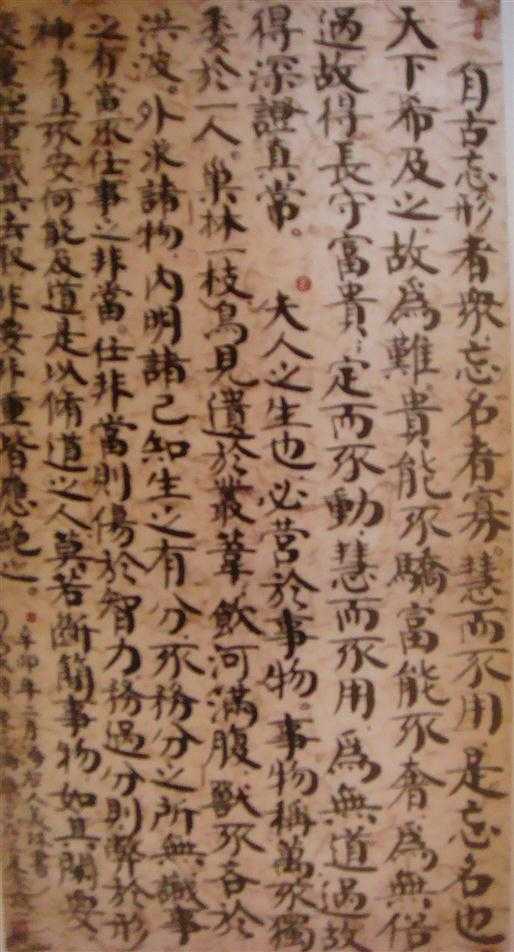 自古忘形者衆忘名者寡。慧而不用是忘名也
天下希及之故為難貴能不驕富能不奢為無俗
過故得長守富貴定而不動慧而不用為無道過故
得深證真常。 夫人之生也必營於事物。事物稱萬不獨
委於一人。巢林一枝鳥見遺於叢葦飲河滿腹獸不吝於
洪波。外求諸物內明諸己知生之有分不務分之所無識事
之有當不仕事之非當。仕非當則傷於智力務過分則弊於形
神。身且不安何能及道是以脩道之人莫若断簡事物如其閑要
輕重識其去取非要非重皆應絶之。
辛卯年二月